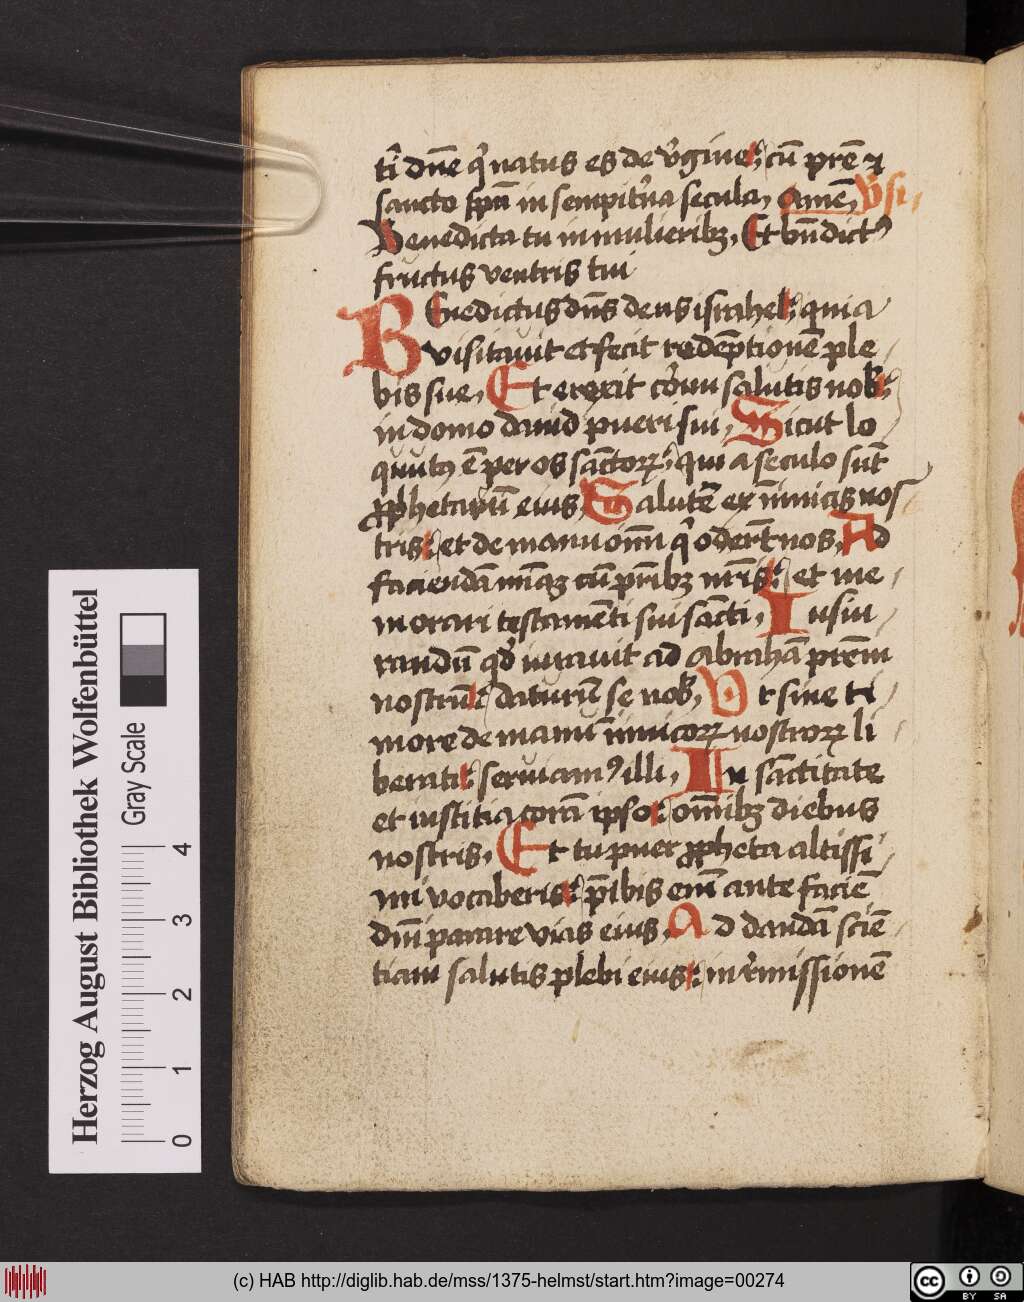 ti dn̄e qͥ natus es de vͥgine: cū pr̄e ⁊
sancto sp̄u in sempitn̄a secula, Amē, V̉si
Benedicta tu in mulieribꝫ, Et bn̄dictꝰ
fructus ventris tui
BEnedictus dn̄s deus israhel: quia
visitauit et fecit redēptionē ple
bis sue, Et erexit cͦnu salutis nob̄:
in domo dauid pueri sui, Sicut lo
qutꝰ ē per os sāctoꝝ: qui a seculo sūt
ꝓphetarū eius, Salutē ex inimicis nos
tris: et de manu oīm qͥ oderūt nos, Ad
faciendā mīam cū pr̄ibꝫ nr̄is: et me
morari testamēti sui sācti, Iusiu
randū qd̄ iurauit ad Abrahā prēm
nostrū: daturū se nob̄, Vt sine ti
more de manu inimicoꝝ nostroꝝ li
berati: seruiamꝰ illi, In sāctitate
et iustitia corā ipso: om̄ibꝫ diebus
nostris, Et tu puer ꝓpheta altissi
mi vocaberis: p̄ibis em̄ ante faciē
dn̄i parare vias eius, Ad dandā sciē
tiam salutis plebi eius: in rͤmissionē
Herzog August Bibliothek Wolfenbüttel
Gray Scale
0 1 2 3 4
(c) HAB http://diglib.hab.de/mss/1375-helmst/start.htm?image=00274
cc BY SA